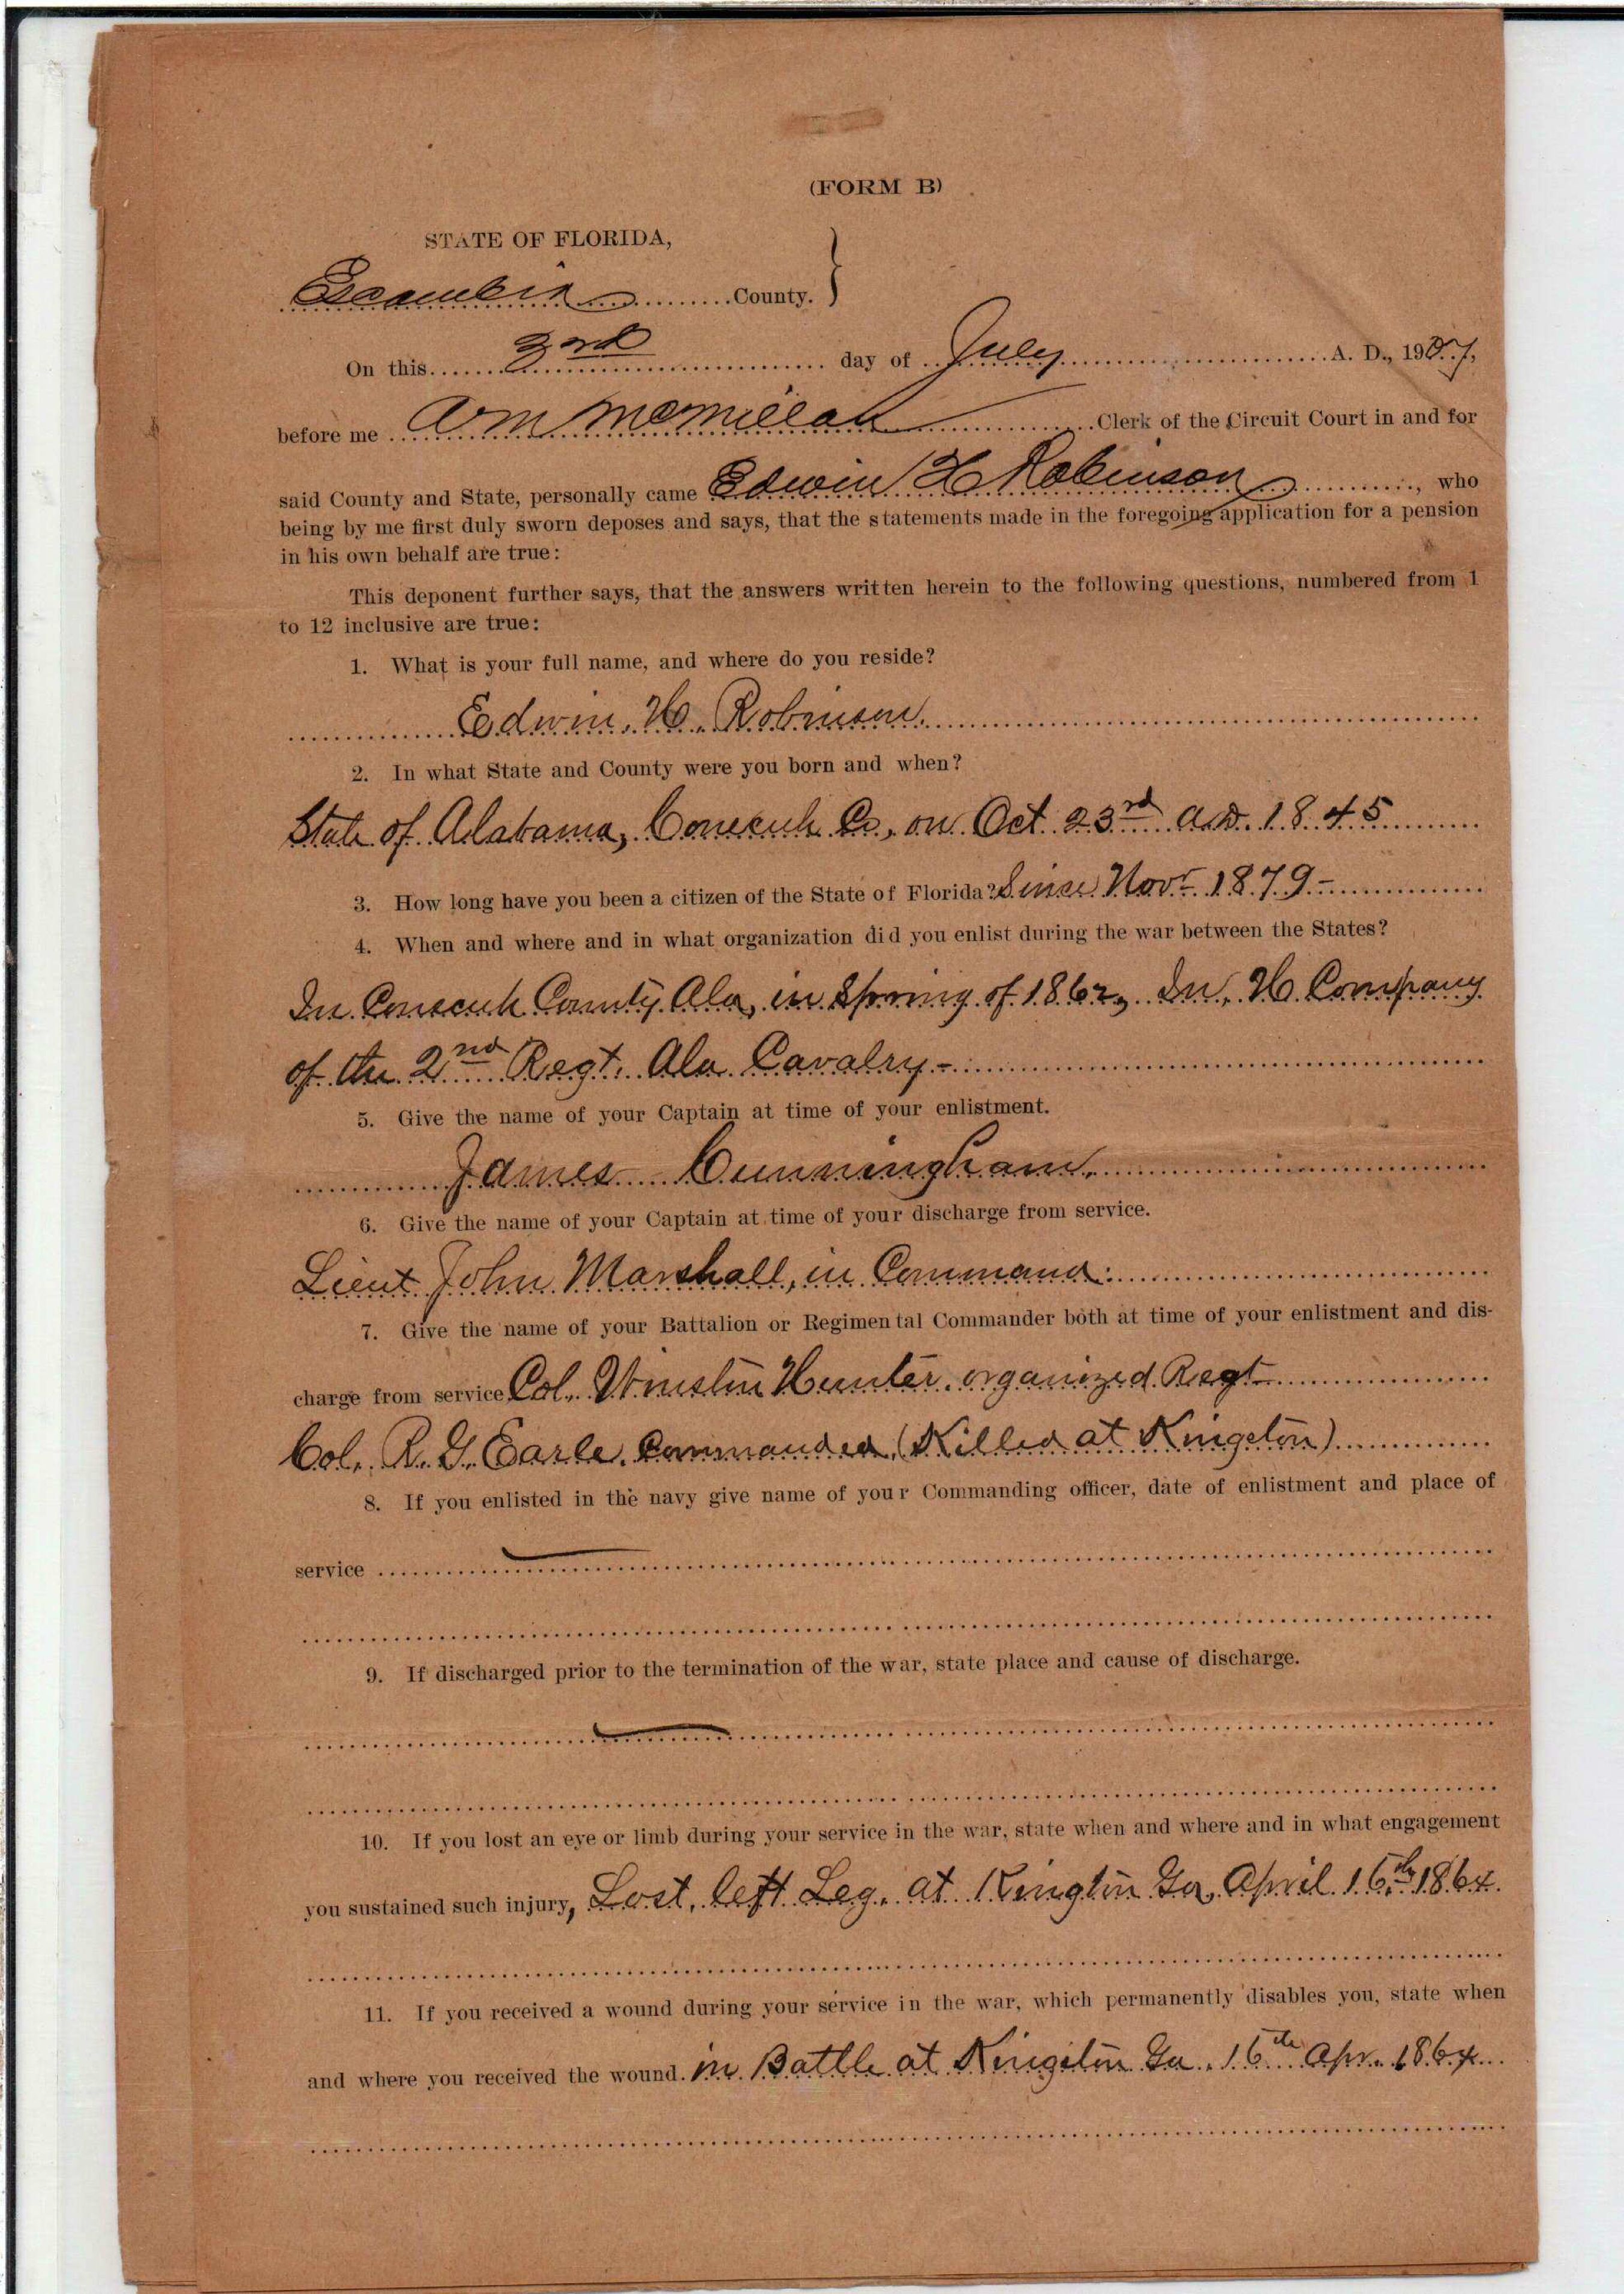 (FORM B)
STATE OF FLORIDA,
Escambia County.
On this 3rd day of July A. D., 1907,
before me A M McMillan Clerk of the Circuit Court in and for
said County and State, personally came Edwin H Robinson, who
being by me first duly sworn deposes and says, that the statements made in the foregoing application for a pension
in his own behalf are true:
This deponent further says, that the answers written herein to the following questions, numbered from 1
to 12 inclusive are true:
1. What is your full name, and where do you reside?
Edwin. H. Robinson.
2. In what State and County were you born and when?
State of Alabama, Conecuh Co, on Oct 23rd A.D. 1845
3. How long have you been a citizen of the State of Florida? Since Novr 1879-
4. When and where and in what organization did you enlist during the war between the States?
In Conecuh County Ala, in Spring of 1862, In, H Company
of the 2nd Regt. Ala Cavalry-
5. Give the name of your Captain at time of your enlistment.
James Cunningham.
6. Give the name of your Captain at time of your discharge from service.
Lieut John Marshall, in Command.
7. Give the name of your Battalion or Regimental Commander both at time of your enlistment and dis-
charge from service Col. Winston Hunter. organized Regt
Col. R. G. Earle. Commanded (Killed at Kingston)
8. If you enlisted in the navy give name of your Commanding officer, date of enlistment and place of
service
9. If discharged prior to the termination of the war, state place and cause of discharge.
10. If you lost an eye or limb during your service in the war, state when and where and in what engagement
you sustained such injury, Lost, left Leg. at Kingston Ga, April 16th 1864.
11. If you received a wound during your service in the war, which permanently disables you, state when
and where you received the wound. in Battle at Kingston Ga. 16th Apr. 1864